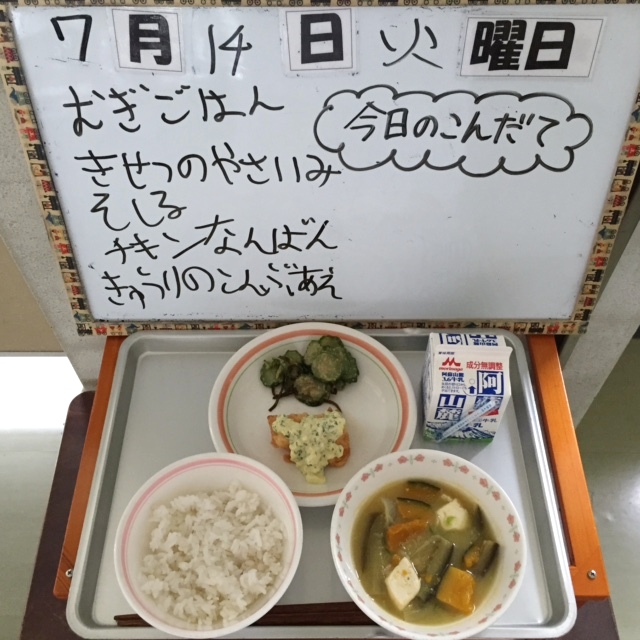 7月14日 火曜日
今日のこんだて
むぎごはん
きせつのやさいいみ
そしる
チキンなんばん
きゅうりのこんぶあえ
成分無調整